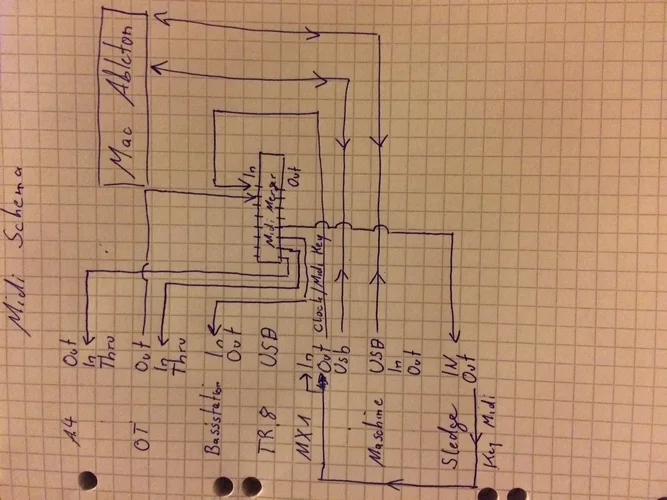 Midi Schema
Mac Ableton
In
Midi Merger
Out
A4
Out
In
Thru
OT
Out
In
Thru
Bassstation
In
Out
TR 8
USB
MX1
In
Out
Usb
Clock/Midi Key
Maschine
USB
In
Out
Sledge
IN
Out
Key Midi